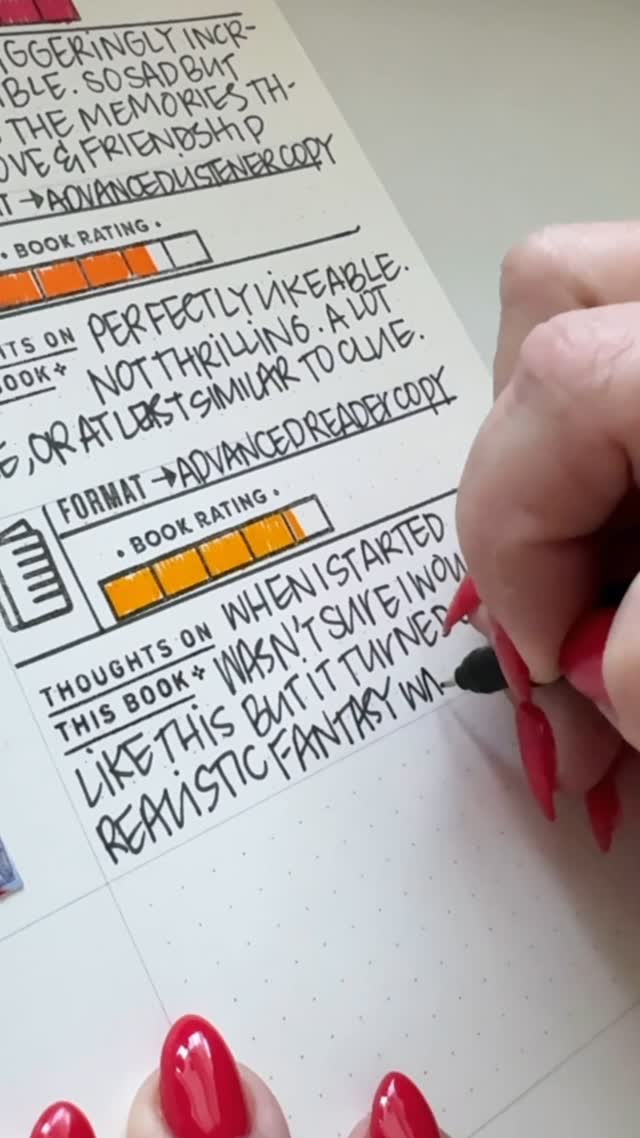 GGERINGLY INCR-
BLE. SO SAD BUT
THE MEMORIES TH-
OVE & FRIENDSHIP
T → ADVANCED LISTENER COPY
• BOOK RATING •
TS ON PERFECTLY LIKEABLE.
OOK+ NOT THRILLING. A LOT
E, OR AT LEAST SIMILAR TO CLUE.
FORMAT → ADVANCED READER COPY
• BOOK RATING •
THOUGHTS ON WHEN I STARTED
THIS BOOK+ WASN'T SURE I WOU
LIKE THIS BUT IT TURNED
REALISTIC FANTASY WA